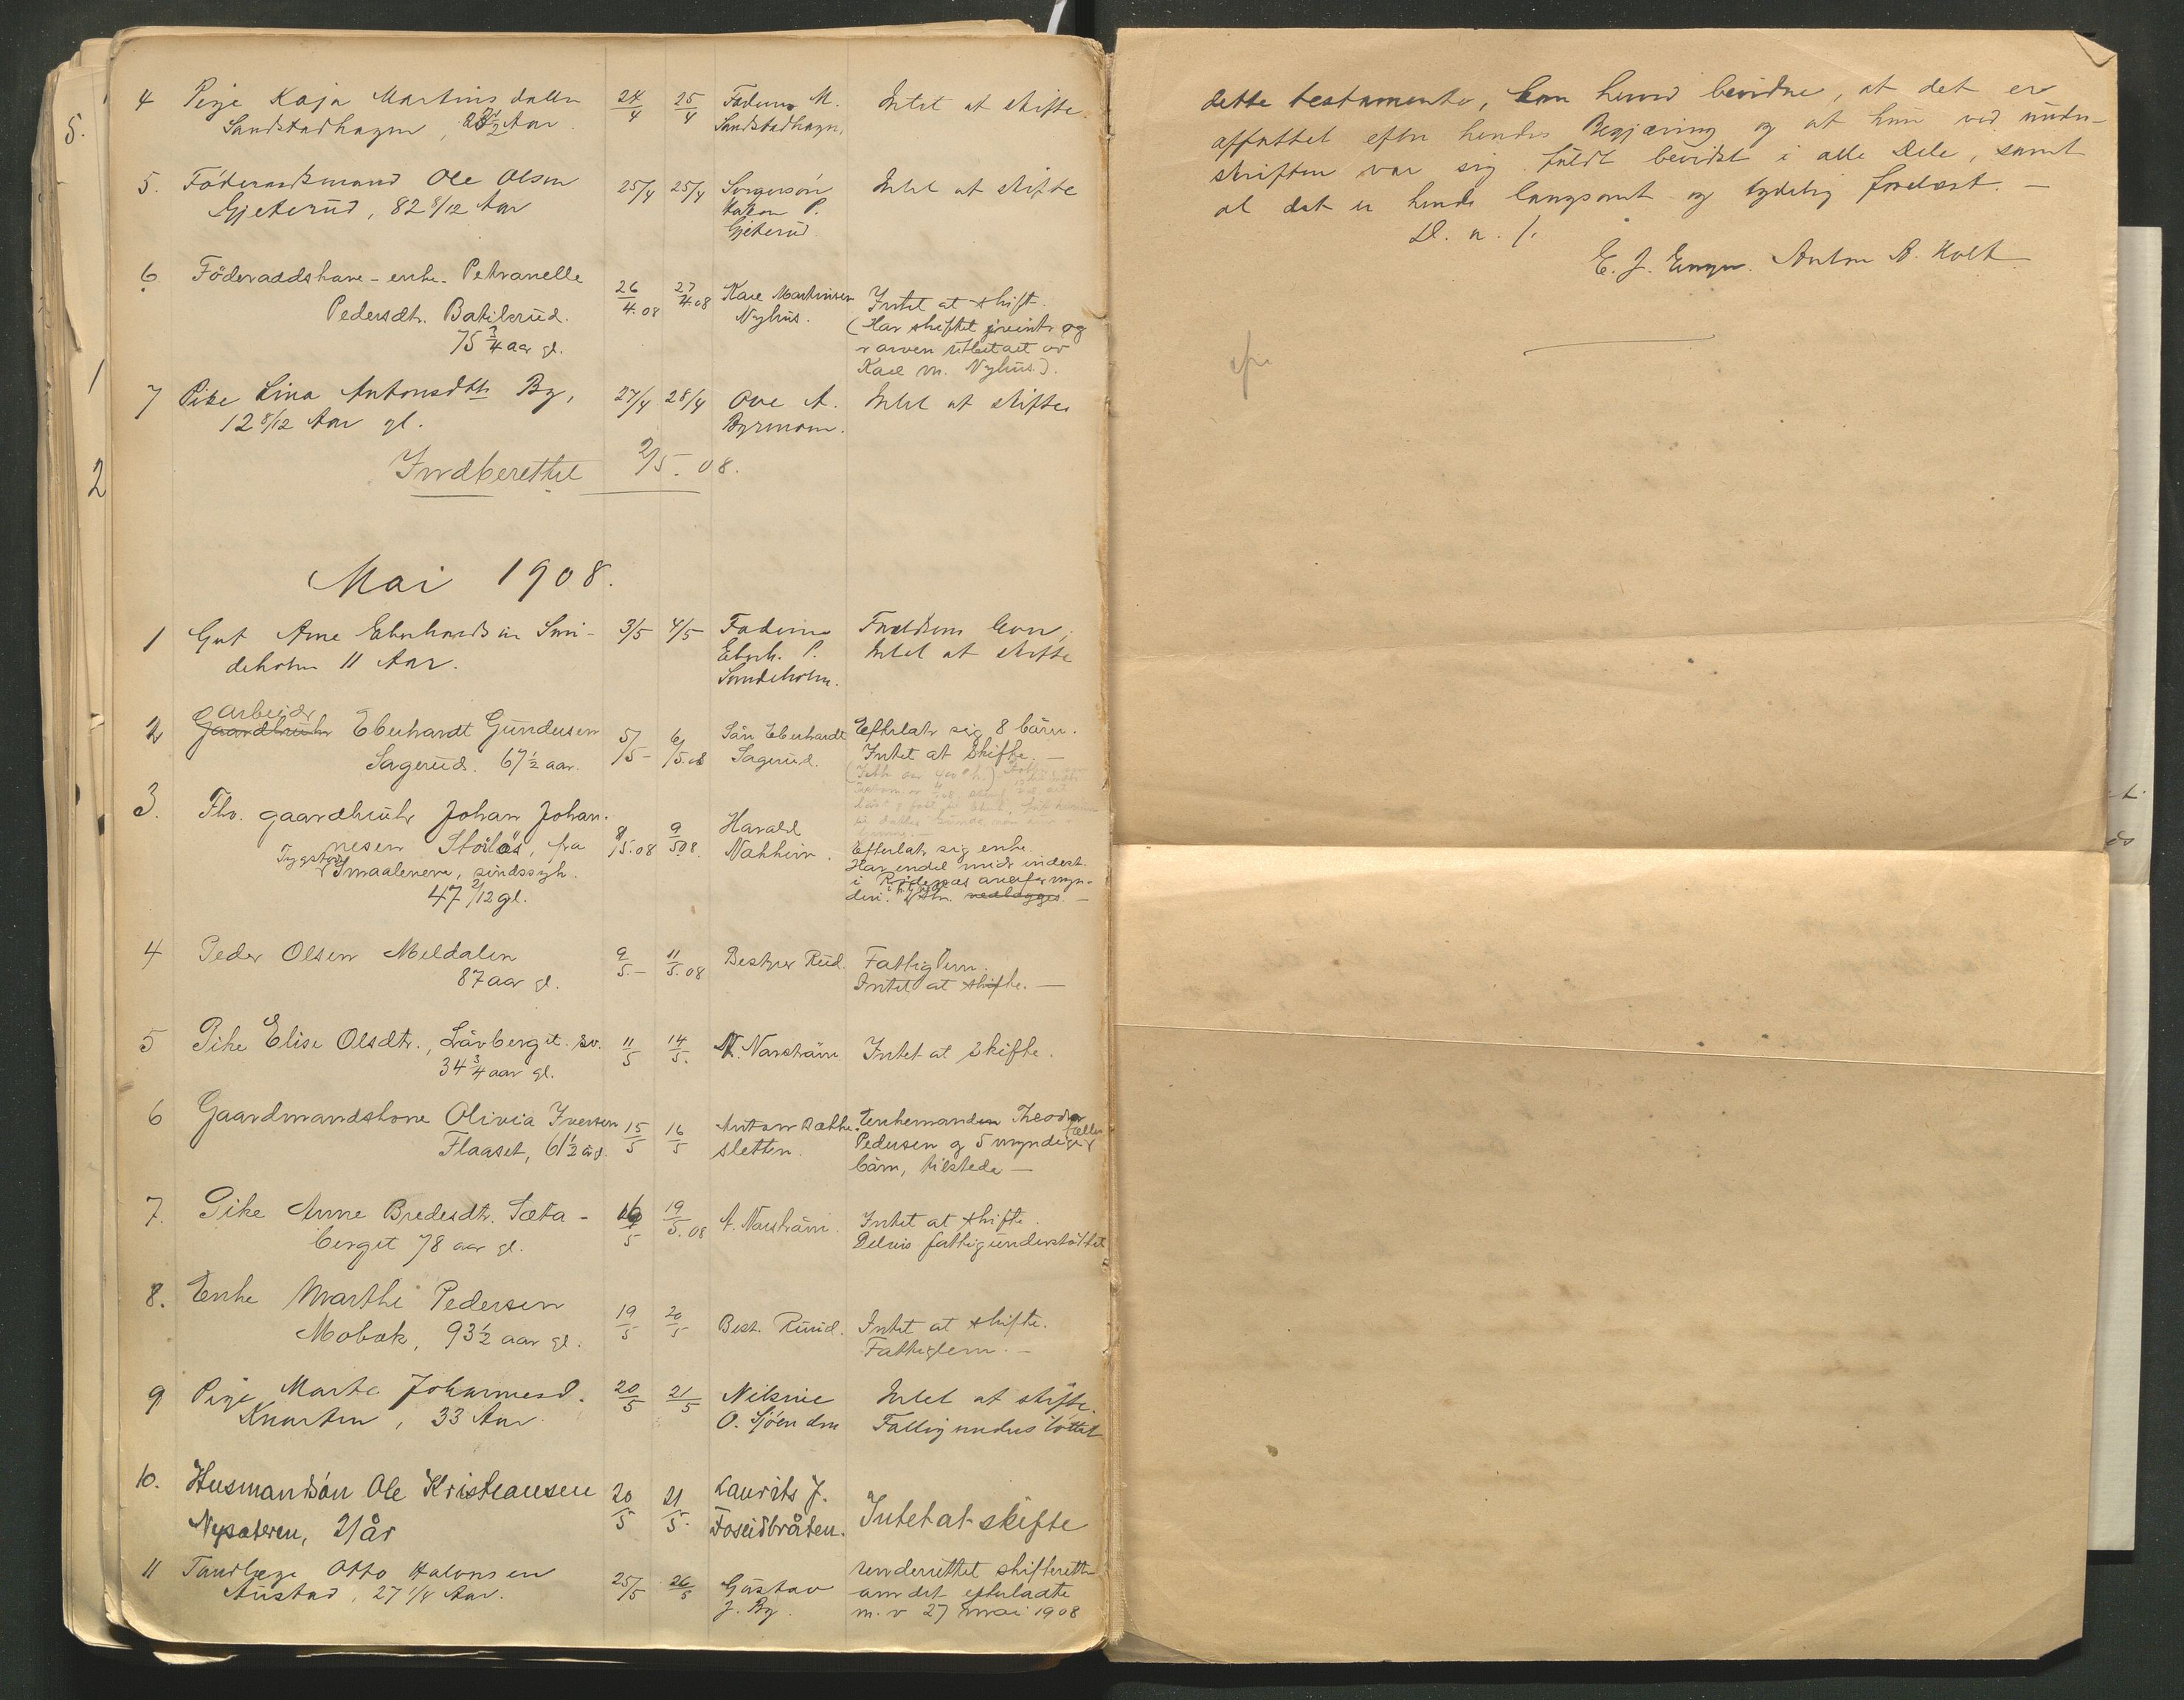 5.
1
2
4 Pige Kaja Martinsdatter 24/4 25/4 Faderen M. Intet at skifte.
Sandstadhagen, Aar Sandstadhagen.
5. Föderaadsmand Ole Olsen 25/4 25/4 Svigersön Intet at skifte
Gjeterud, 82 8/12 Aar Hakon P.
Gjeterud
6 Föderaadshave-enke Petranelle 26/4.08 27/4.08 Karl Martinsen Intet at skift.
Pedersdtr. Batilrud. Nyhus. (Har skiftet og
75 3/4 aar gl. arven utbetalt av
Karl M. Nyhus.).
7 Pike Lina Antonsdtr By, 27/4 28/4 Ove A. Intet at skifte
12 8/12 Aar gl. Byrmoen.
Indberettet 2/5. 08.
Mai 1908.
1 Gut Arne Eberhardsen Sun- 3/5 4/5 Faderen Forældrene lever,
deholm 11 Aar. Eberh. P. Intet at skifte
Sundeholm.
Arbeider
2 Gaardbruker Eberhardt Gundersen 5/5 6/5.08 Sön Eberhardt Efterlater sig 8 börn.
Sagerud. 67 1/2 aar. Sagerud. Intet at skifte. —
3. Fhv. gaardbruker Johan Johan- 8/5.08 9/5.08. Harald
nesen Stöilös, fra Nakkim. Efterlater sig enke.
Smaalenene, sindssyk. Har endel midler indest.
47 2/12 gl. i Rödenæs overformyn-
deri. nedlægges. —
4 Peder Olsen Meldalen 9/5.- 11/5.08 Bestyrer Rud. Fattiglem.
87 aar gl. Intet at skifte. —
5 Pike Elise Olsdtr., Lövberget. 11/5 14/5. N. Narström Intet at skifte.
34 3/4 aar gl.
6 Gaardmandskone Olivia Iversen 15/5 16/5 Anton Enkemanden Theodor
Flaaset, 61 1/2 år. sletten. Pedersen og 5 myndige
börn, tilstede —
7. Pike Anne Bredesdtr. Sæta- 16/5 19/5.08 N. Narström. Intet at skifte.
berget 78 aar gl. Delvis fattigunderstöttet
8. Enke Marthe Pedersen 19/5 20/5 Best. Ruud. Intet at skifte.
Mobæk, 93 1/2 aar gl. Fattiglem. —
9 Pige Marte Johannesd. 20/5 21/5 Nilsine Intet at skifte.
Knarten, 33 Aar. O. Sjöenden Fattigunderstöttet
10. Husmandsön Ole Kristiansen 20/5 21/5. Laurits J. Intet at skifte
Nysæteren, 21 år Foseidbråten.
11 Tandlæge Otto Halvorsen 25/5 26/5 Gustav underrettet skifteretten
Austad, 27 1/4 Aar. J. By. om det efterladte
m. v 27 mai 1908
dette testamente, kan herved bevidne, at det er
affattet efter hendes Begjæring og at hun ved under-
skriften var sig fuldt bevidst i alle Dele, samt
at det er hende langsomt og tydelig forelæst. —
D. u. s.
E. J. Anton A. Holt